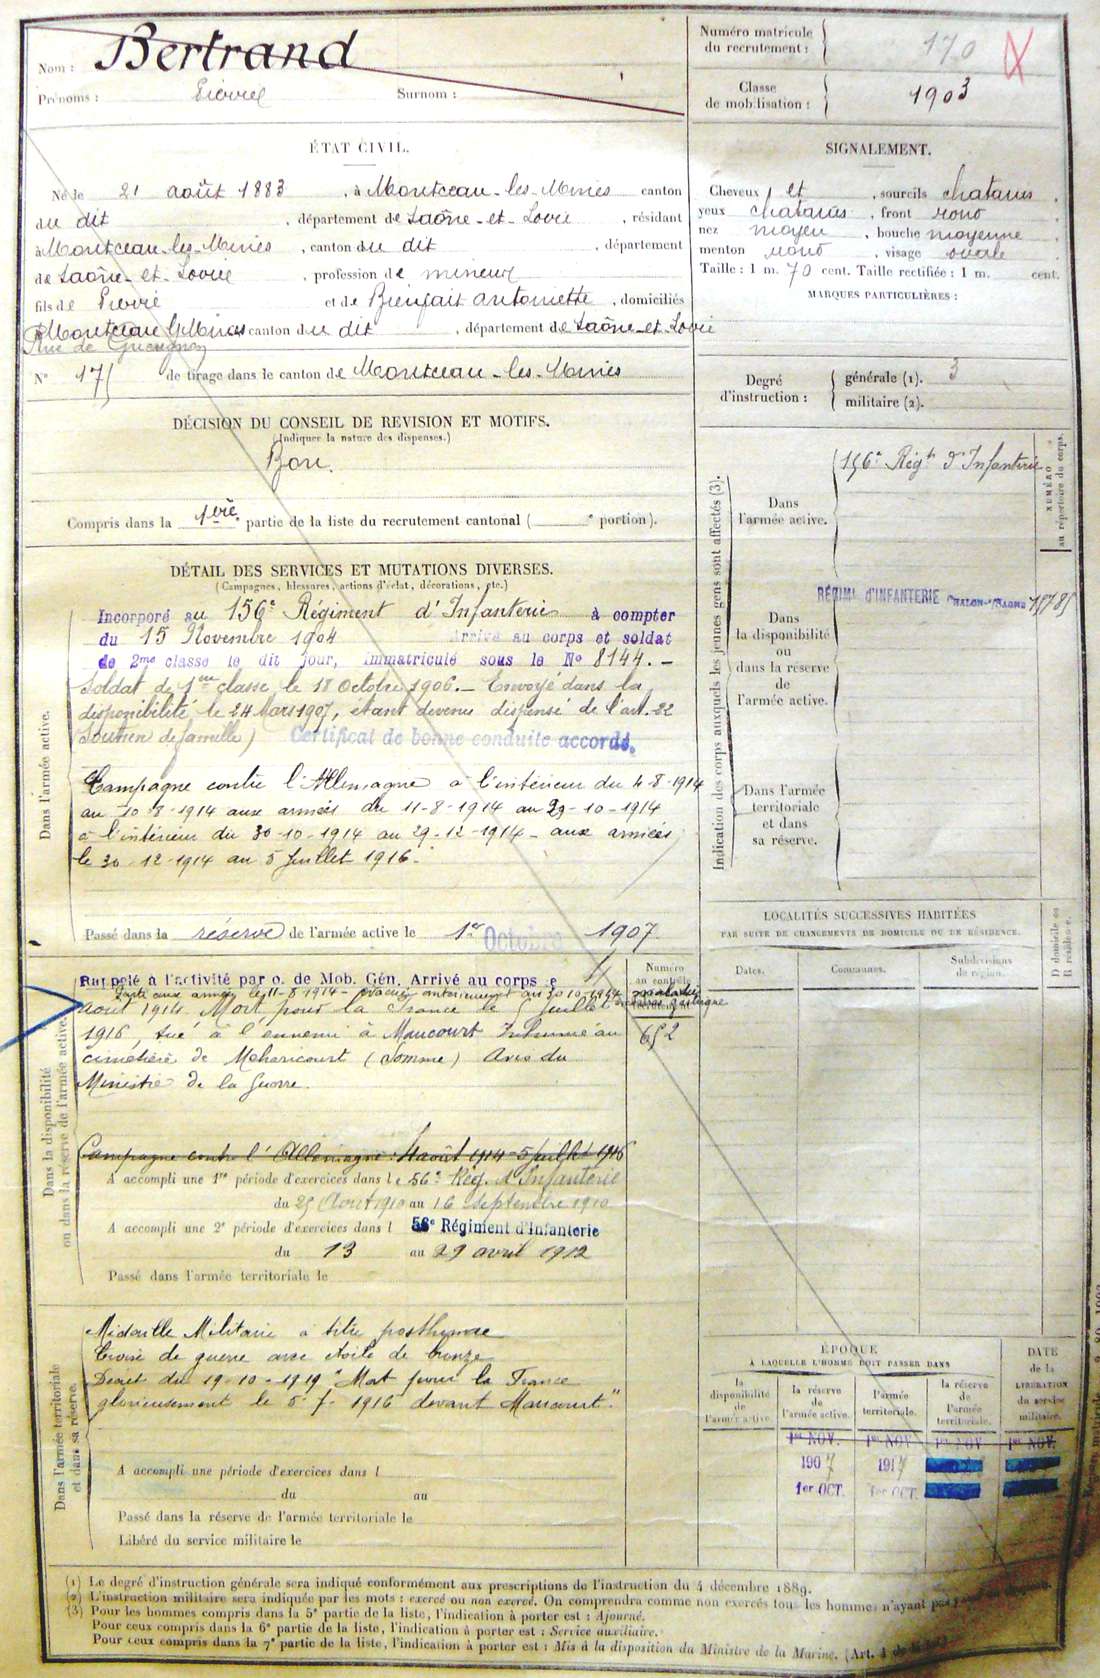 Nom : Bertrand
Prénoms : Pierre Surnom :
Numéro matricule du recrutement : 170
Classe de mobilisation : 1903
ÉTAT CIVIL.
Né le 21 août 1883, à Montceau-les-Mines canton
du dit, département de Saône-et-Loire, résidant
à Montceau-les-Mines, canton du dit, département
de Saône-et-Loire, profession de mineur
fils de Pierre et de Bienfait Antoinette, domiciliés
à Montceau les Mines canton du dit, département de Saône-et-Loire
Rue de Gueugnon
N° 175 de tirage dans le canton de Montceau-les-Mines
SIGNALEMENT.
Cheveux et, sourcils chatains,
yeux chatains, front rond
nez moyen, bouche moyenne,
menton rond, visage ovale
Taille : 1 m. 70 cent. Taille rectifiée : 1 m. cent.
MARQUES PARTICULIÈRES :
Degré d'instruction : générale (1). 3
militaire (2).
DÉCISION DU CONSEIL DE REVISION ET MOTIFS.
(Indiquer la nature des dispenses.)
Bon.
Compris dans la 1ère partie de la liste du recrutement cantonal ( e portion).
DÉTAIL DES SERVICES ET MUTATIONS DIVERSES.
(Campagnes, blessures, actions d'éclat, décorations, etc.)
Dans l'armée active.
Incorporé au 156e Régiment d'Infanterie à compter
du 15 Novembre 1904 Arrivé au corps et soldat
de 2me classe le dit jour, immatriculé sous le No 8144.-
Soldat de 1re classe le 18 Octobre 1906.- Envoyé dans la
disponibilité le 24 Mars 1907, étant devenu dispensé de l'art. 22
(Soutien de famille) Certificat de bonne conduite accordé.
Campagne contre l'Allemagne à l'intérieur du 4-8-1914
au 10-8-1914 aux armées du 11-8-1914 au 29-10-1914
à l'intérieur du 30-10-1914 au 29-12-1914 - aux armées
le 30-12-1914 au 5 Juillet 1916.
Passé dans la réserve de l'armée active le 1er Octobre 1907
Indication des corps auxquels les jeunes gens sont affectés (3).
NUMÉRO au répertoire du corps.
Dans l'armée active.
156e Régt d'Infanterie
Dans la disponibilité ou dans la réserve de l'armée active.
RÉGIMt d'INFANTERIE CHALON-s/SAONE
Dans l'armée territoriale et dans sa réserve.
LOCALITÉS SUCCESSIVES HABITÉES
PAR SUITE DE CHANGEMENTS DE DOMICILE OU DE RÉSIDENCE.
Dates. Communes. Subdivisions de région. D domicile ou R résidence.
Dans la disponibilité ou dans la réserve de l'armée active.
Rappelé à l'activité par o. de Mob. Gén. Arrivé au corps le 4
Parti aux armées le 11-8-1914 - évacué antérieurement au 30 10 1914 malade
août 1914. Mort pour la France le 5 Juillet
1916, tué à l'ennemi à Maucourt Inhumé au
cimetière de Méharicourt (Somme) Avis du
Ministre de la Guerre.
Numéro au contrôle
652
Campagne contre l'Allemagne : 4 août 1914 - 5 Juillet 1916
A accompli une 1re période d'exercices dans le 56e Rég. d'Infanterie
du 25 Août 1910 au 16 septembre 1910
A accompli une 2e période d'exercices dans l 56e Régiment d'Infanterie
du 13 au 29 avril 1912
Passé dans l'armée territoriale le
Dans l'armée territoriale et dans sa réserve.
Médaille Militaire à titre posthume
Croix de guerre avec étoile de bronze
Décret du 19-10-1919 "Mort pour la France
glorieusement le 5-7-1916 devant Maucourt."
A accompli une période d'exercices dans l
du au
Passé dans la réserve de l'armée territoriale le
Libéré du service militaire le
ÉPOQUE
À LAQUELLE L'HOMME DOIT PASSER DANS
la disponibilité de l'armée active.
la réserve de l'armée active.
l'armée territoriale.
la réserve de l'armée territoriale.
DATE de la LIBÉRATION du service militaire.
1er NOV. 1er NOV. 1er NOV. 1er NOV.
1907 1917
1er OCT. 1er OCT.
(1) Le degré d'instruction générale sera indiqué conformément aux prescriptions de l'instruction du 4 décembre 1889.
(2) L'instruction militaire sera indiquée par les mots : exercé ou non exercé. On comprendra comme non exercés tous les hommes n'ayant pas
(3) Pour les hommes compris dans la 5e partie de la liste, l'indication à porter est : Ajourné.
Pour ceux compris dans la 6e partie de la liste, l'indication à porter est : Service auxiliaire.
Pour ceux compris dans la 7e partie de la liste, l'indication à porter est : Mis à la disposition du Ministre de la Marine. (Art. 4